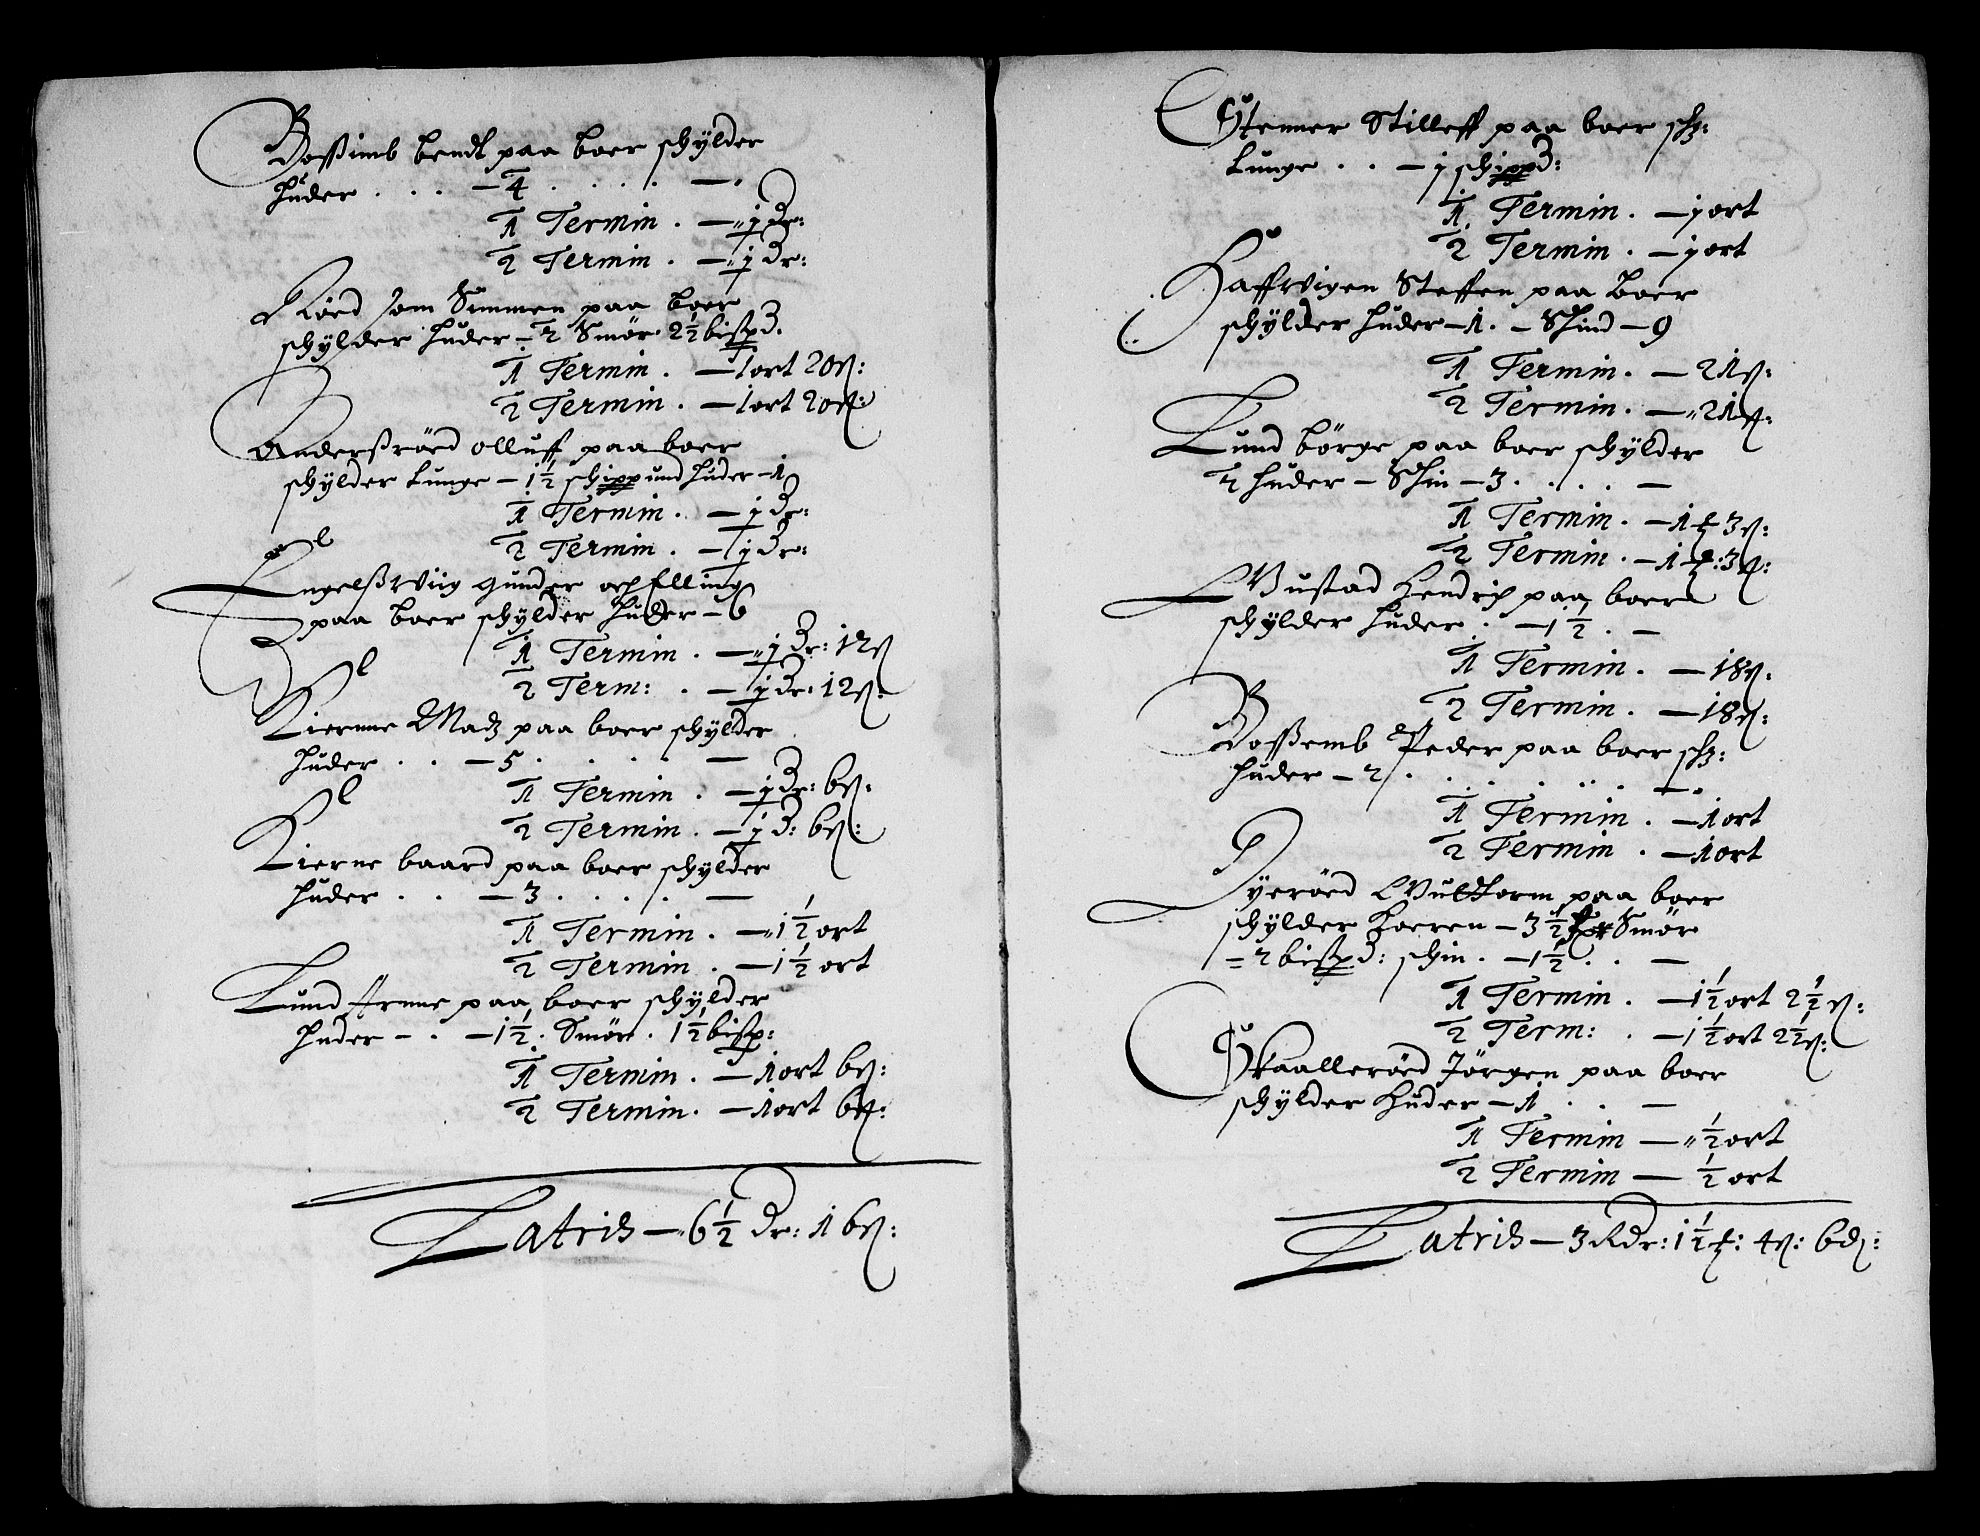 Boßimb bendt paa boer schÿlder
huder . . . — 4 . . . . —
1 Termin . — j dr:
2 Termin . — j dr:
Röed som Simmen paa boer
schÿlder huder – 2 Smör 2½ bißpd.
1 Termin . — 1 ort 20 ß:
2 Termin . — 1 ort 20 ß:
Anderßröed olluff paa boer
schÿlder tunge – 1½ schippund huder – 1
1 Termin . — j dr:
2 Termin . — j dr:
Engelßwiig gunder och Elling
paa boer schÿlder huder – 6
1 Termin . — j dr: 12 ß
2 Term: . — j dr: 12 ß:
Kiernne Madz paa boer schÿlder
huder . . — 5 . . . . —
1 Termin . — j dr: 6 ß:
2 Termin . — j d: 6 ß:
Kierne baard paa boer schÿlder
huder . . — 3 . . . . —
1 Termin . — 1½ ort
2 Termin . — 1½ ort
Lund Arnne paa boer schÿlder
huder – . — 1½ . Smör . 1½ bißp:
1 Termin . — 1 ort 6 ß:
2 Termin . — 1 ort 6 ß:
Latris — 6½ dr: 1 6 ß:
Stenner Stilleff paa boer sch:
tunge . . — j schippd:
1 Termin . — j ort
2 Termin . — j ort
Haffwigen Steffen paa boer
schÿlder huder – 1 . – Skind – 9
1 Termin . — 21 ß:
2 Termin . — 21 ß:
Lund börge paa boer schÿlder
2 huder – Skin – 3 . . . . —
1 Termin . — 1 f 3 ß:
2 Termin . — 1 f: 3 ß:
Wustad Hendrich paa boer
schÿlder huder . — 1½ . —
1 Termin . — 18 ß:
2 Termin . — 18 ß:
Boßemb Peder paa boer sch:
huder – 2 . . . . . . —
1 Termin . — 1 ort
2 Termin . — 1 ort
Dÿeröed paa boer
schÿlder Hoeren – 3½ Smör
= 2 bißpd: schin . — 1½ . . —
1 Termin . — 1½ ort 2½ ß:
2 Term: . — 1½ ort 2½ ß:
Skaalleröed Jörgen paa boer
schÿlder huder – 1 . . —
1 Termin — ½ ort
2 Termin — ½ ort
Latris — 3 Rdr: 1½ f: 4 ß: 6 d: